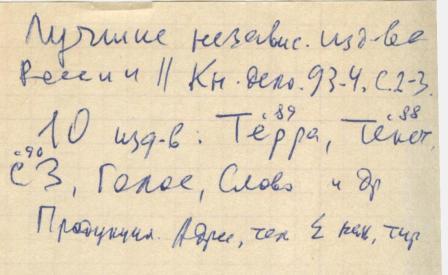 Лучшие независ. изд-ва
России // Кн. дело. 93-4. С. 2-3.
10 изд-в: Терра, Текст,
с 89 с 88
с 90
СЗ, Голос, Слово и др
Продукция. Адрес, тел Σ наз, тир